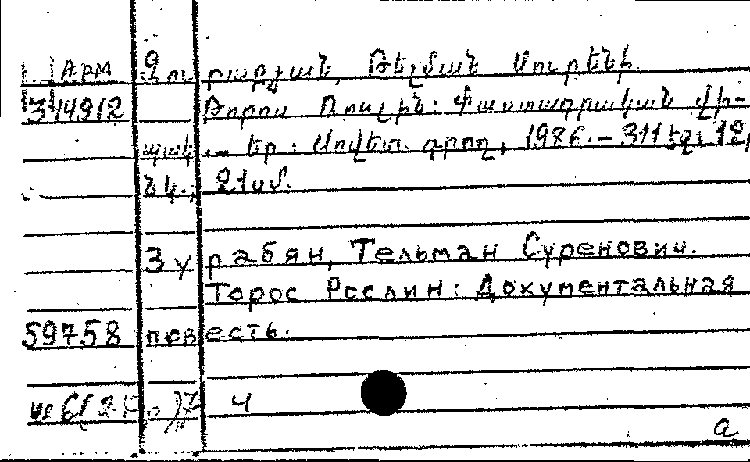 Арм Զուրաբյան, Թելման Սուրենի.
344912 Թորոս Ռոսլին: Փաստագրական վի-
պակ.— Եր.: Սովետ. գրող, 1986.— 311 էջ, 12
նկ.; 21սմ.
Зурабян, Тельман Суренович.
Торос Рослин: Документальная
59758 повесть.
Ч
а